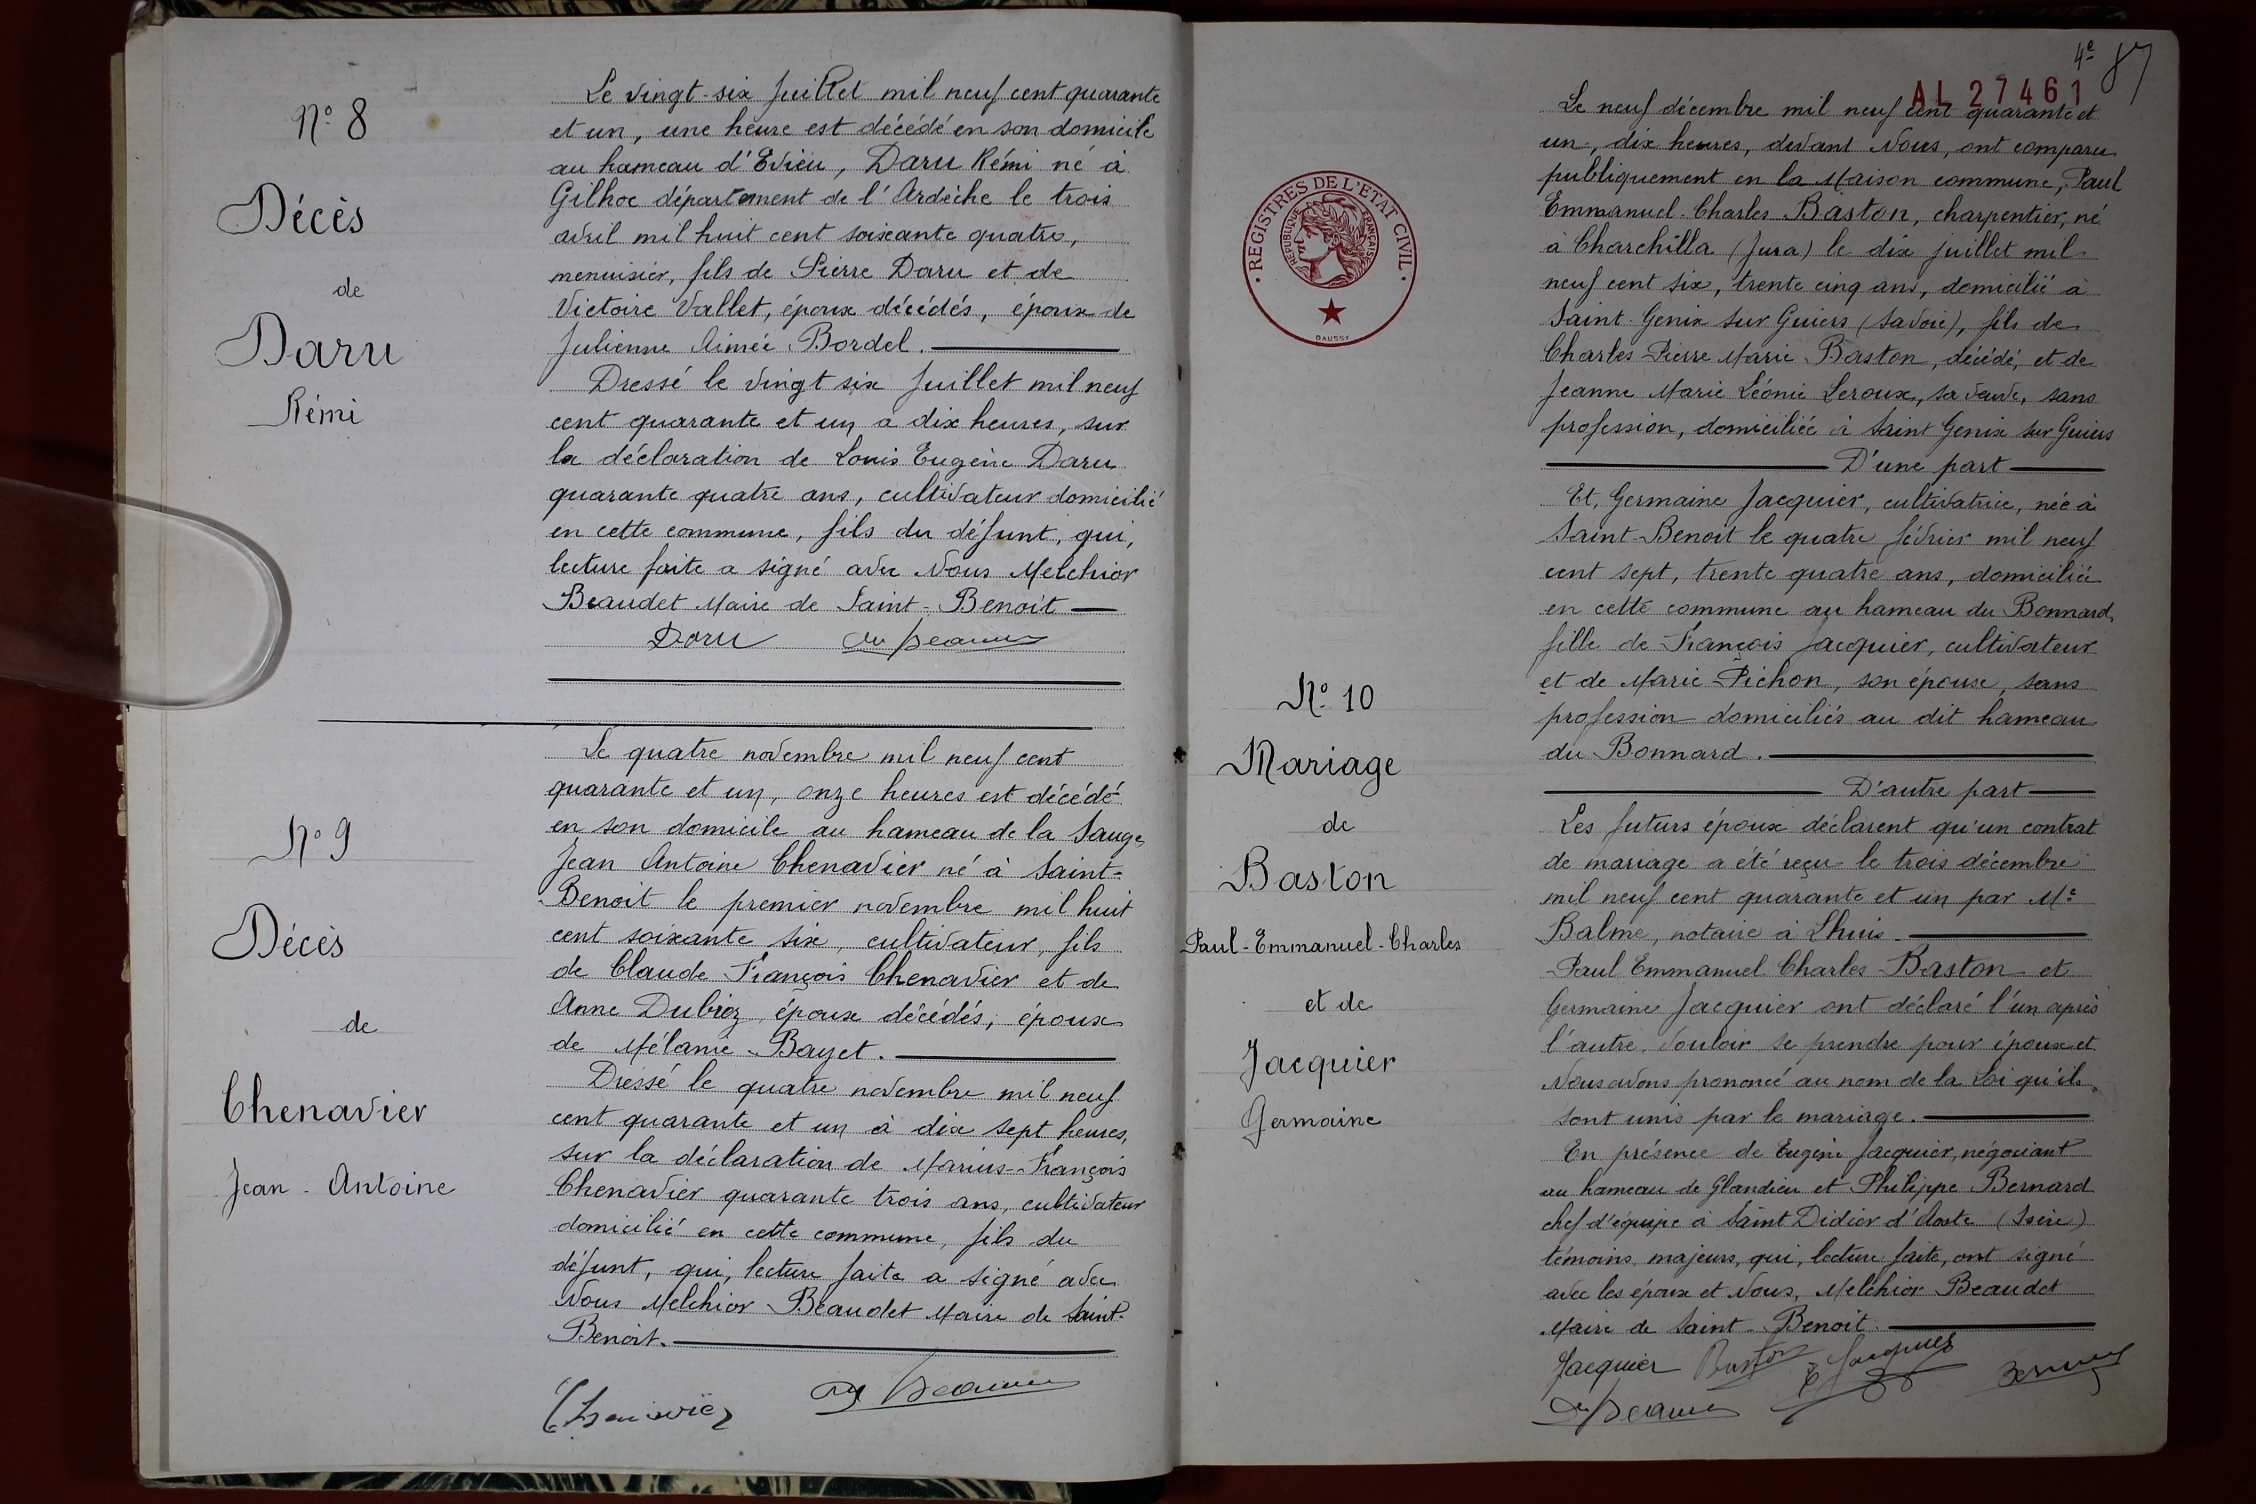 Nº 8
Décès
de
Daru
Rémi
Le vingt-six Juillet mil neuf cent quarante
et un, une heure est décédé en son domicile
au hameau d'Evieu, Daru Rémi né à
Gilhoc département de l'Ardèche le trois
avril mil huit cent soixante quatre,
menuisier, fils de Pierre Daru et de
Victoire Vallet, époux décédés, époux de
Julienne Aimée Bordel.
Dressé le vingt six Juillet mil neuf
cent quarante et un à dix heures, sur
la déclaration de Louis Eugène Daru
quarante quatre ans, cultivateur domicilié
en cette commune, fils du défunt, qui,
lecture faite a signé avec Nous Melchior
Beaudet Maire de Saint-Benoit
Daru
Nº 9
Décès
de
Chenavier
Jean-Antoine
Le quatre novembre mil neuf cent
quarante et un, onze heures est décédé
en son domicile au hameau de la Sauge,
Jean Antoine Chenavier né à Saint-
Benoit le premier novembre mil huit
cent soixante six, cultivateur, fils
de Claude François Chenavier et de
Anne Dubioz, époux décédés, époux
de Mélanie Bayet.
Dressé le quatre novembre mil neuf
cent quarante et un à dix sept heures,
sur la déclaration de Marius-François
Chenavier quarante trois ans, cultivateur
domicilié en cette commune, fils du
défunt, qui, lecture faite a signé avec
Nous Melchior Beaudet Maire de Saint-
Benoit.
4e
87
AL 27461
REGISTRES DE L'ETAT CIVIL
REPUBLIQUE FRANCAISE
DAUSSY
Nº 10
Mariage
de
Baston
Paul-Emmanuel-Charles
et de
Jacquier
Germaine
Le neuf décembre mil neuf cent quarante et
un, dix heures, devant Nous, ont comparu
publiquement en la Maison commune, Paul
Emmanuel-Charles Baston, charpentier, né
à Charchilla (Jura) le dix juillet mil
neuf cent six, trente cinq ans, domicilié à
Saint-Genix sur Guiers (Savoie), fils de
Charles Pierre Marie Baston, décédé, et de
Jeanne Marie Léonie Leroux, sa veuve, sans
profession, domiciliée à Saint Genix sur Guiers
D'une part
Et, Germaine Jacquier, cultivatrice, née à
Saint-Benoit le quatre février mil neuf
cent sept, trente quatre ans, domiciliée
en cette commune au hameau du Bonnard,
fille de François Jacquier, cultivateur
et de Marie Pichon, son épouse, sans
profession domiciliés au dit hameau
du Bonnard.
D'autre part
Les futurs époux déclarent qu'un contrat
de mariage a été reçu le trois décembre
mil neuf cent quarante et un par Me
Balme, notaire à Lhuis.
Paul Emmanuel Charles Baston et
Germaine Jacquier ont déclaré l'un après
l'autre vouloir se prendre pour époux et
Nous avons prononcé au nom de la Loi qu'ils
sont unis par le mariage.
En présence de Eugène Jacquier, négociant
au hameau de Glandieu et Philippe Bernard
chef d'équipe à Saint Didier d'Aoste (Isère)
témoins majeurs, qui, lecture faite, ont signé
avec les époux et Nous, Melchior Beaudet
Maire de Saint-Benoit.
Jacquier Baston E Jacquier